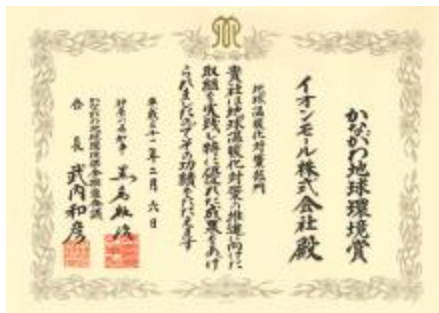 かながわ地球環境賞
イオンモール株式会社 殿
地球温暖化対策部門
貴社は地球温暖化対策の推進に向けた
取組を実践し特に優れた成果をあげ
られましたのでその功績をたたえます
平成三十一年二月六日
神奈川県知事 黒岩祐治
かながわ地球環境保全推進会議
会長 武内和彦